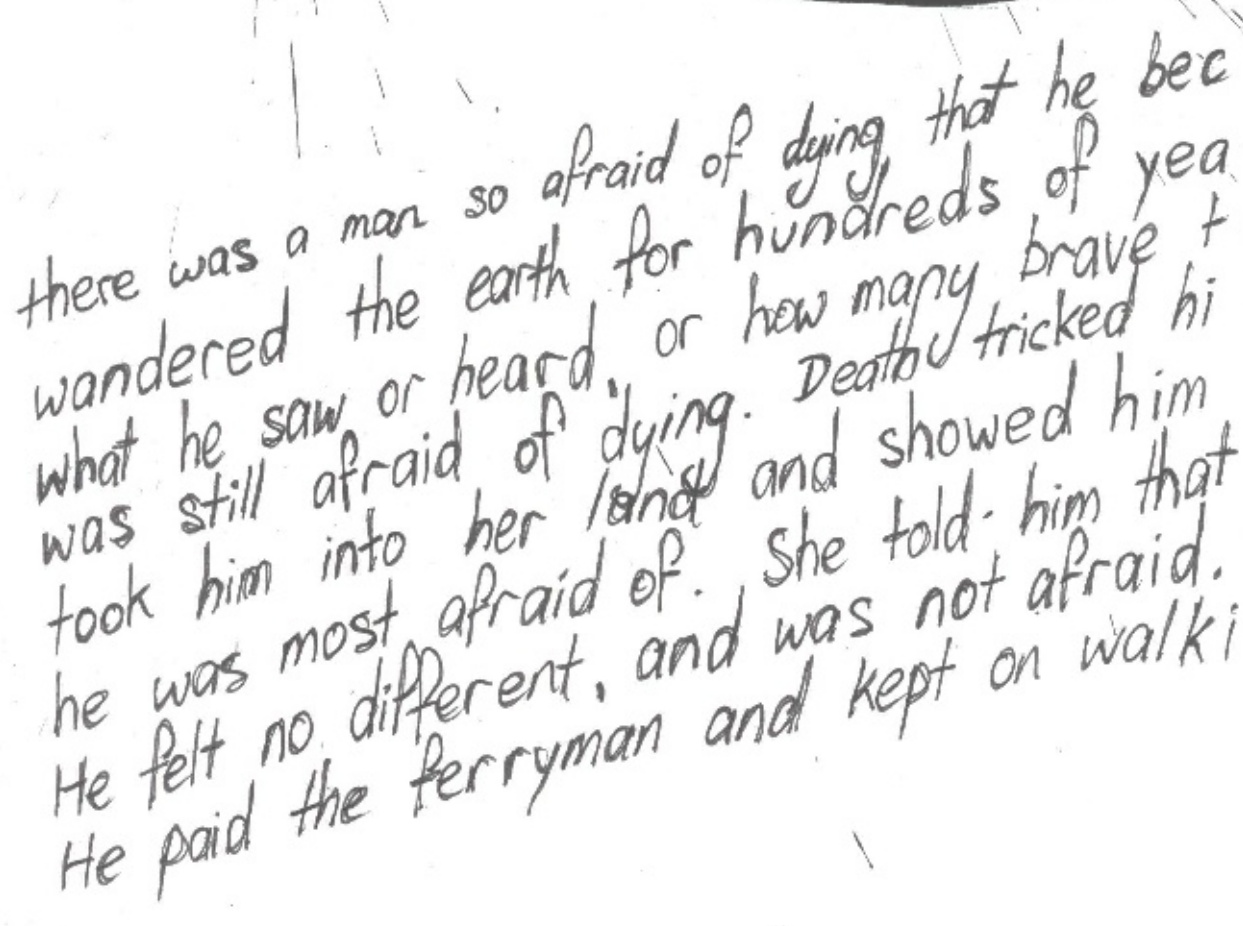 there was a man so afraid of dying that he bec
wandered the earth for hundreds of yea
what he saw or heard, or how many brave t
was still afraid of dying. Death tricked hi
took him into her land and showed him
he was most afraid of. She told him that
He felt no different, and was not afraid.
He paid the ferryman and kept on walki